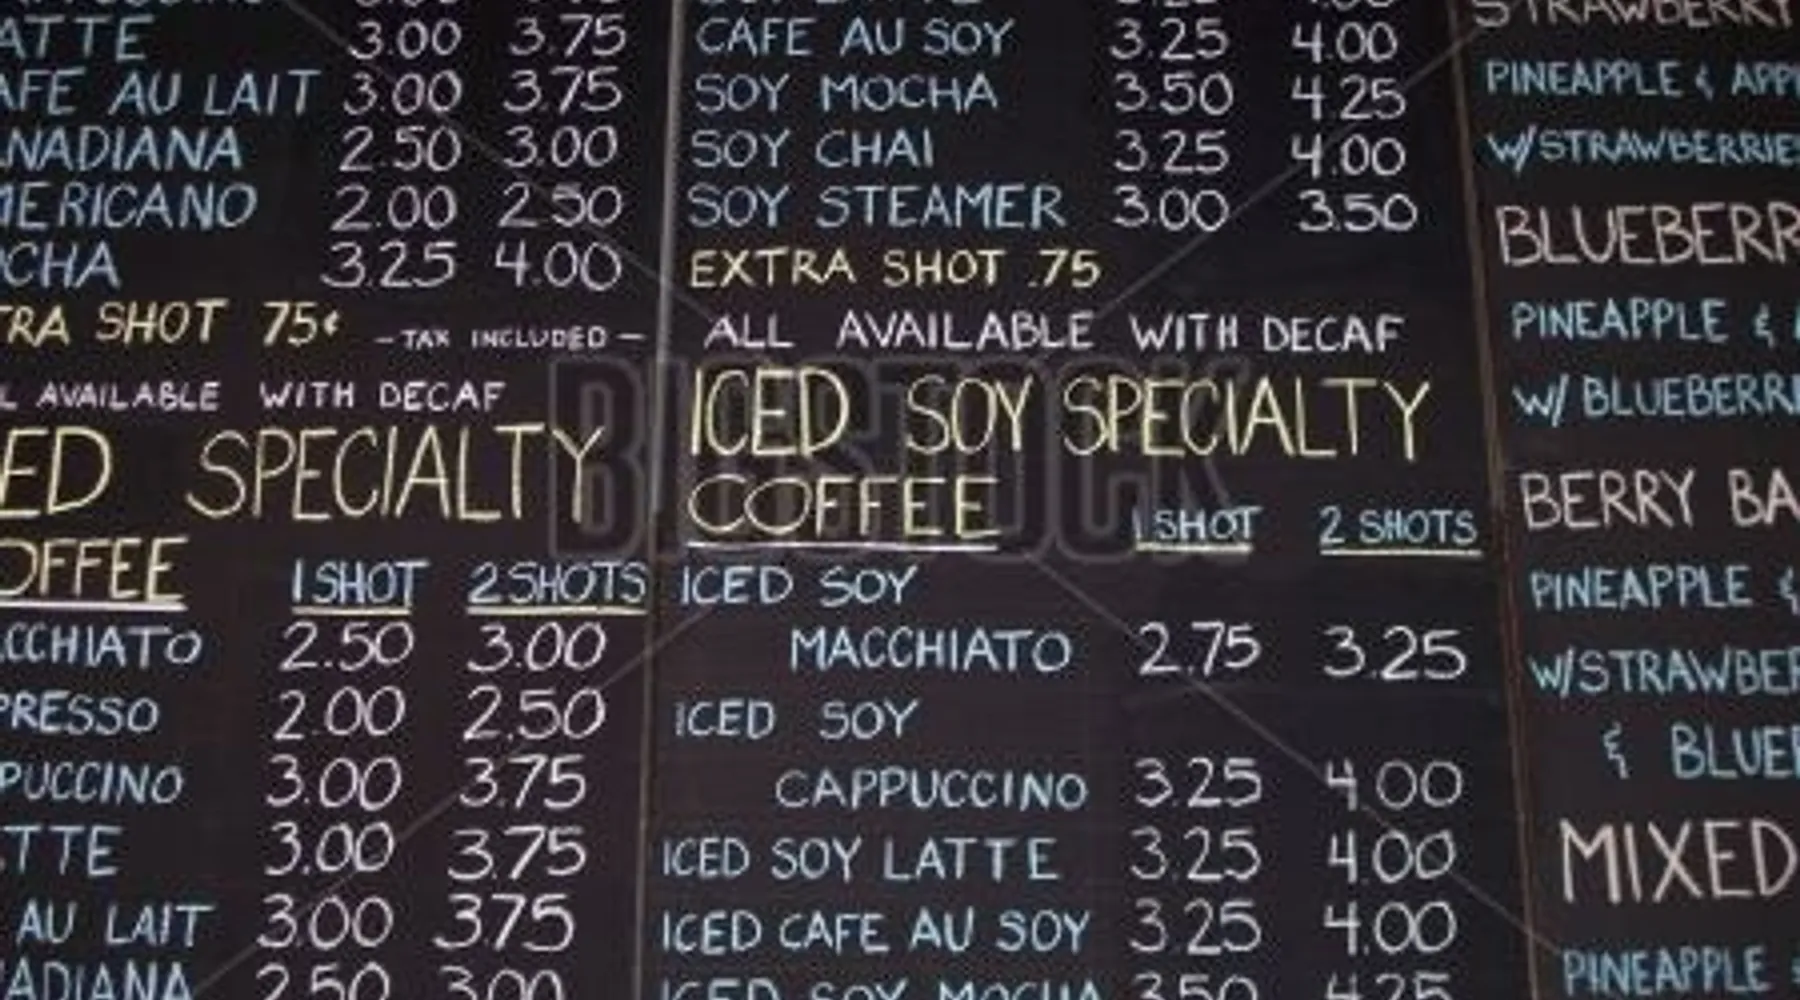 ATTE 3.00 3.75
AFE AU LAIT 3.00 3.75
NADIANA 2.50 3.00
MERICANO 2.00 2.50
OCHA 3.25 4.00
TRA SHOT 75¢ - TAX INCLUDED -
L AVAILABLE WITH DECAF
ED SPECIALTY
OFFEE 1 SHOT 2 SHOTS
CCHIATO 2.50 3.00
PRESSO 2.00 2.50
PUCCINO 3.00 3.75
TTE 3.00 3.75
AU LAIT 3.00 3.75
ADIANA 2.50 3.00
CAFE AU SOY 3.25 4.00
SOY MOCHA 3.50 4.25
SOY CHAI 3.25 4.00
SOY STEAMER 3.00 3.50
EXTRA SHOT .75
ALL AVAILABLE WITH DECAF
ICED SOY SPECIALTY
COFFEE 1 SHOT 2 SHOTS
ICED SOY
MACCHIATO 2.75 3.25
ICED SOY
CAPPUCCINO 3.25 4.00
ICED SOY LATTE 3.25 4.00
ICED CAFE AU SOY 3.25 4.00
ICED SOY MOCHA 3.50 4.25
STRAWBERRY
PINEAPPLE & APP
W/STRAWBERRIES
BLUEBERR
PINEAPPLE &
W/ BLUEBERRI
BERRY BA
PINEAPPLE &
W/STRAWBER
& BLUEB
MIXED
PINEAPPLE
BIGSTOCK